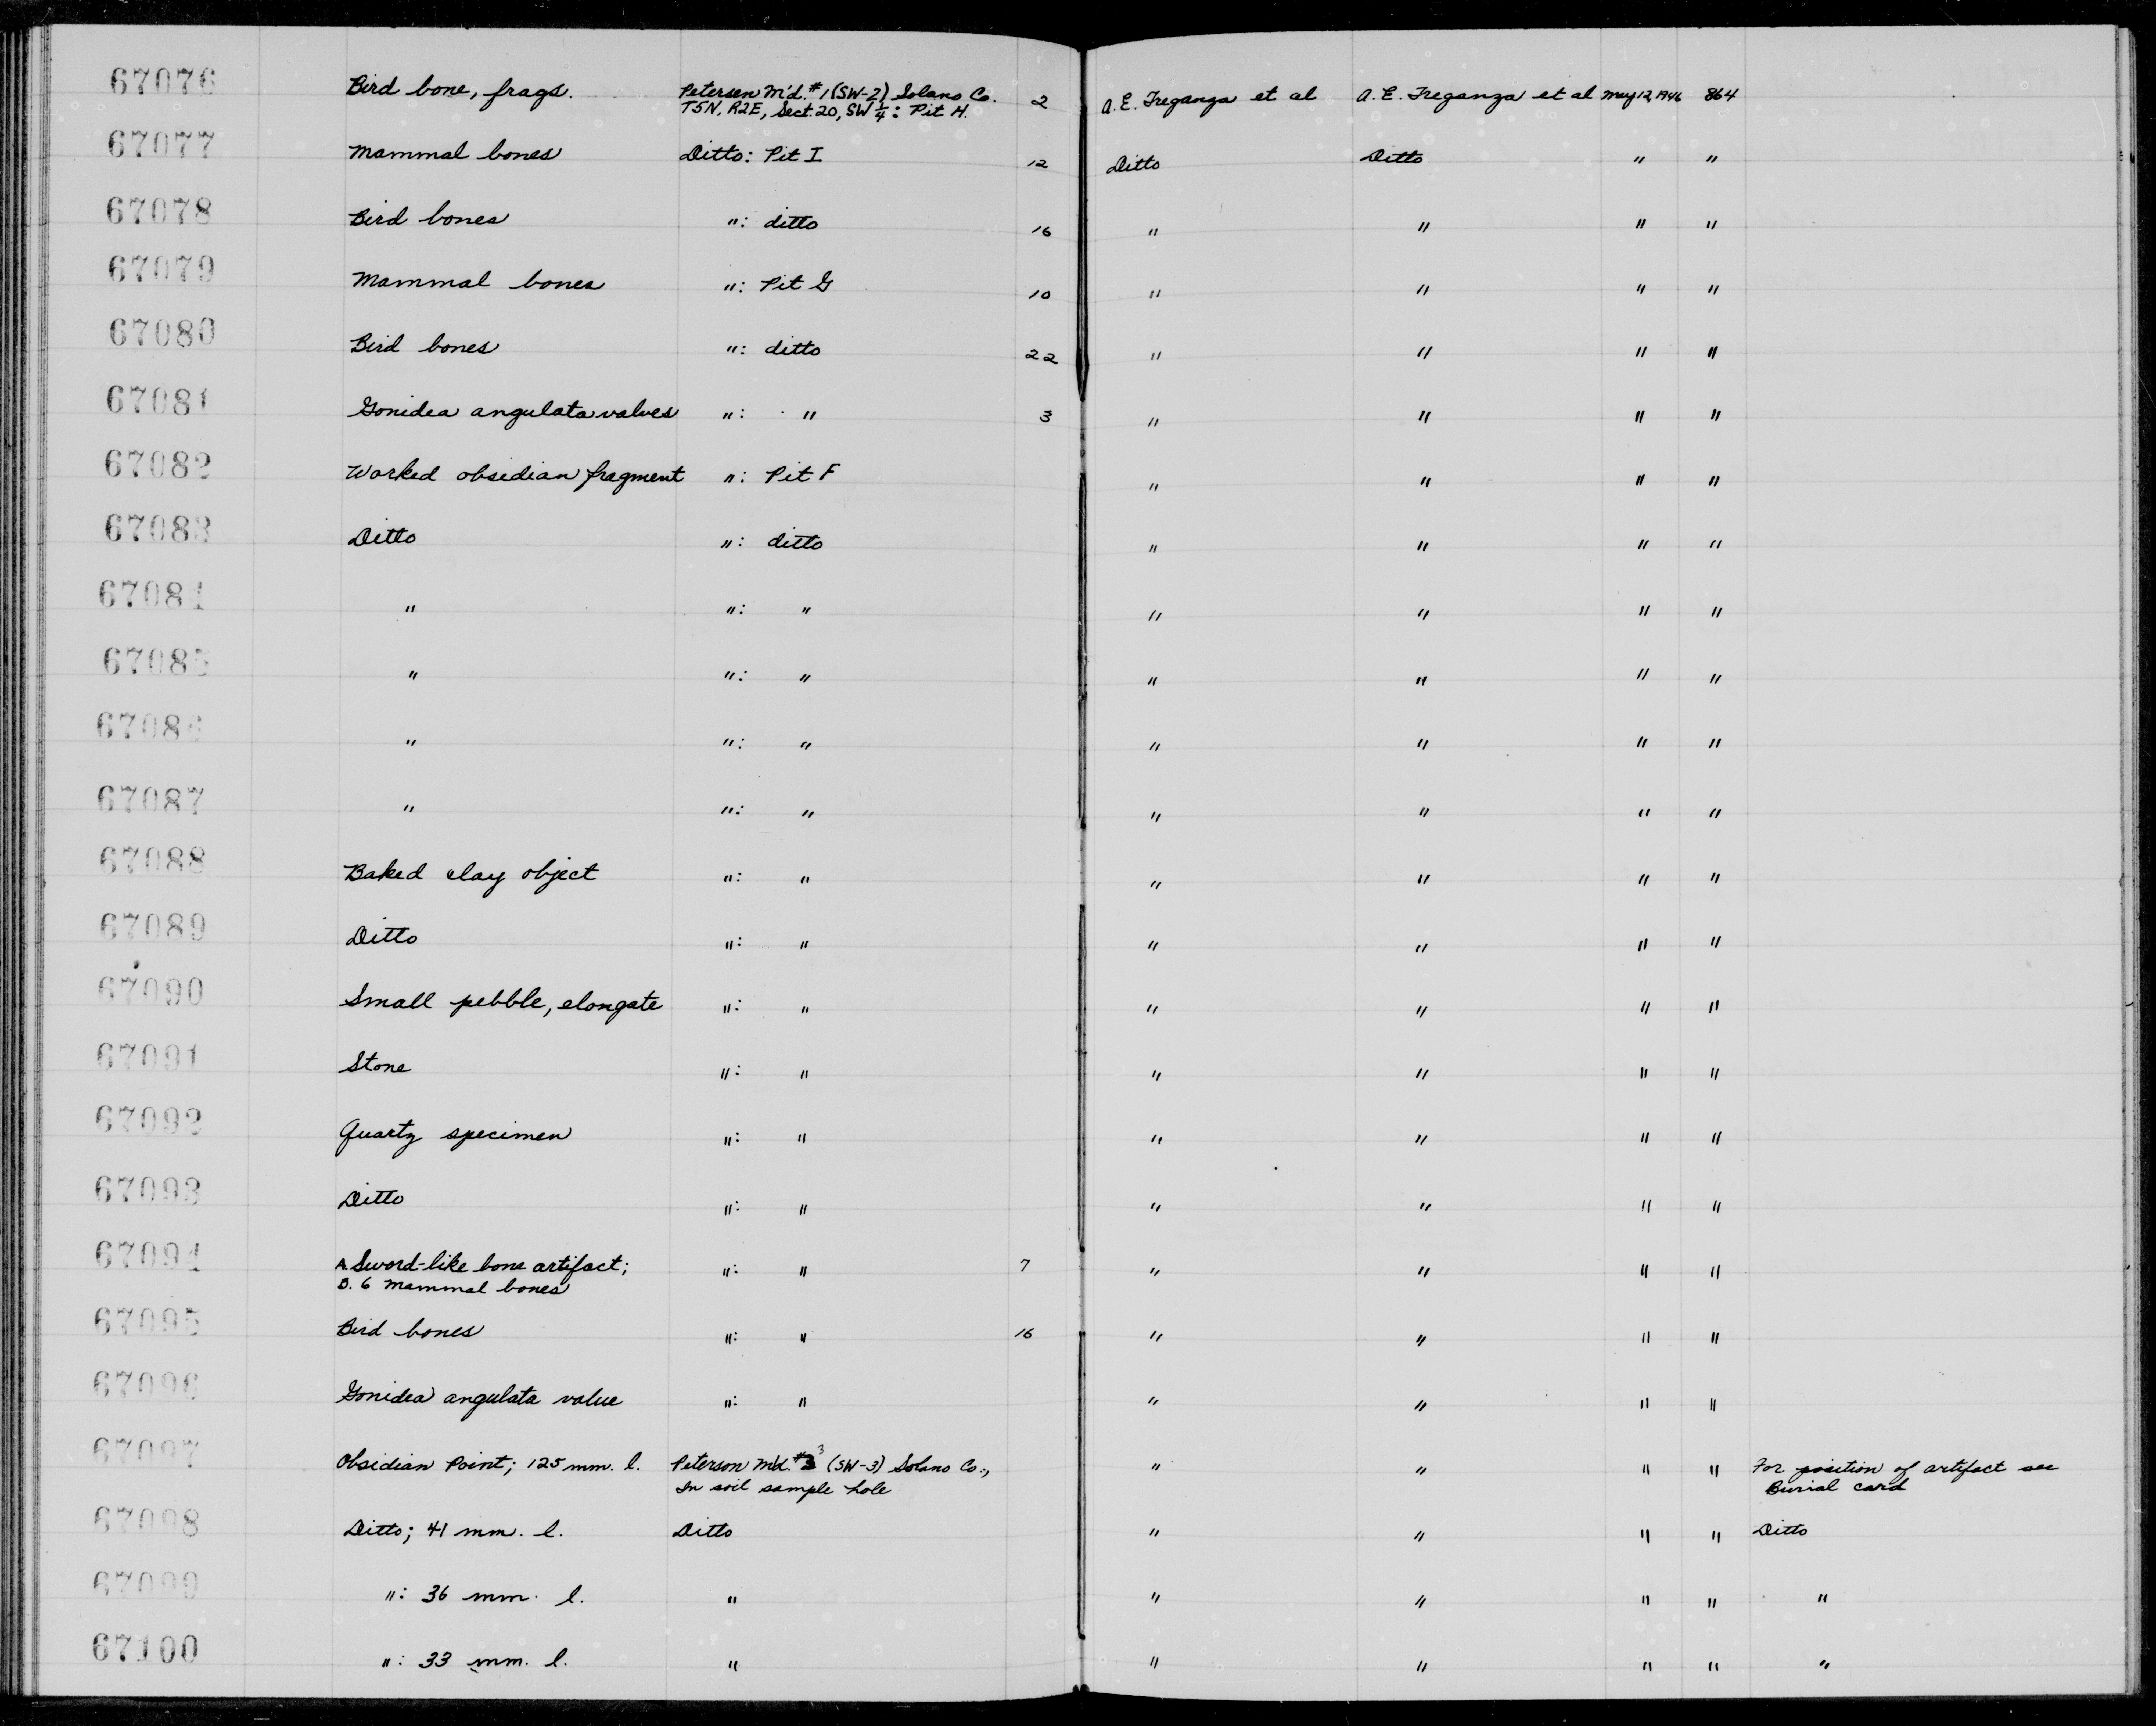 67076 Bird bone, frags. Petersen M'd. #1 (SW-2) Solano Co. 2 A. E. Treganza et al A. E. Treganza et al May 12, 1946 864
T5N, R2E, Sect. 20, SW 1/4: Pit H.
67077 Mammal bones Ditto: Pit I 12 Ditto Ditto " "
67078 Bird bones ": ditto 16 " " " "
67079 Mammal bones ": Pit G 10 " " " "
67080 Bird bones ": ditto 22 " " " "
67081 Gonidea angulata valves ": " 3 " " " "
67082 Worked obsidian fragment ": Pit F " " " "
67083 Ditto ": ditto " " " "
67084 " ": " " " " "
67085 " ": " " " " "
67086 " ": " " " " "
67087 " ": " " " " "
67088 Baked clay object ": " " " " "
67089 Ditto ": " " " " "
67090 Small pebble, elongate ": " " " " "
67091 Stone ": " " " " "
67092 Quartz specimen ": " " " " "
67093 Ditto ": " " " " "
67094 A. Sword-like bone artifact; ": " 7 " " " "
B. 6 mammal bones
67095 Bird bones ": " 16 " " " "
67096 Gonidea angulata value ": " " " " "
67097 Obsidian Point; 125 mm. l. Peterson M'd. #3 (SW-3) Solano Co., " " " " For position of artifact see
In soil sample hole Burial card
67098 Ditto; 41 mm. l. Ditto " " " " Ditto
67099 ": 36 mm. l. " " " " " "
67100 ": 33 mm. l. " " " " " "